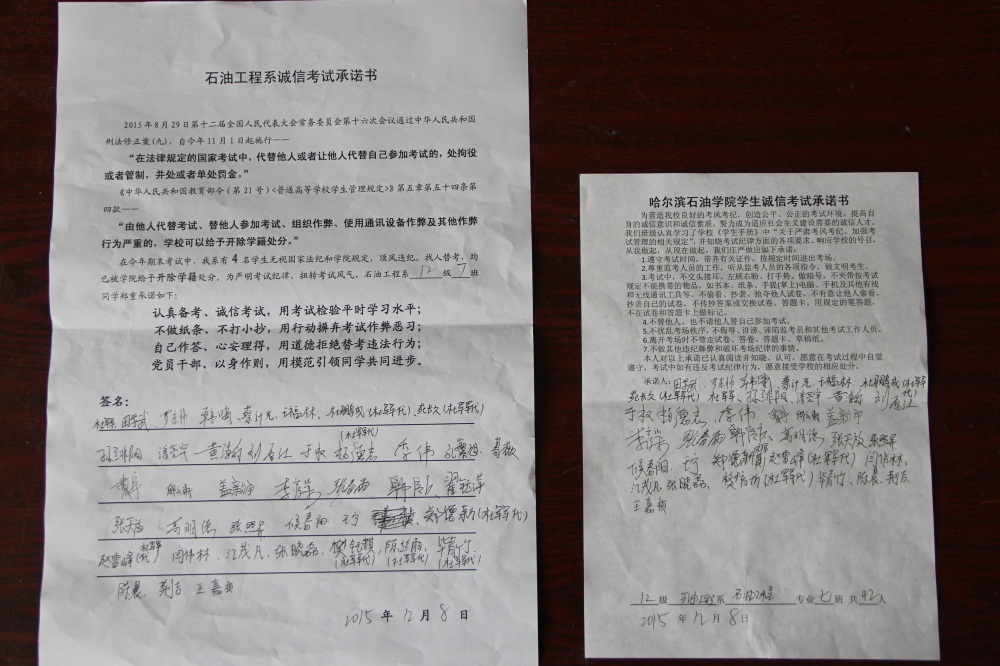 石油工程系诚信考试承诺书
2015年8月29日第十二届全国人民代表大会常务委员会第十六次会议通过中华人民共和国
刑法修正案(九)，自今年11月1日起施行——
“在法律规定的国家考试中，代替他人或者让他人代替自己参加考试的，处拘役
或者管制，并处或者单处罚金。”
《中华人民共和国教育部令（第21号）<普通高等学校学生管理规定>》第五章第五十四条第
四款——
“由他人代替考试、替他人参加考试、组织作弊、使用通讯设备作弊及其他作弊
行为严重的，学校可以给予开除学籍处分。”
在今年期末考试中，我系有4名学生无视国家法纪和学院规定，顶风违纪，找人替考，均
已被学院给予开除学籍处分。为严明考试纪律，扭转考试风气，石油工程系12级7班
同学郑重承诺如下：
认真备考、诚信考试，用考试检验平时学习水平；
不做纸条、不打小抄，用行动摒弃考试作弊恶习；
自己作答、心安理得，用道德拒绝替考违法行为；
党员干部、以身作则，用模范引领同学共同进步。
签名：
李伟
盖新宇
张天放 侯春阳 郑德新(杜军军代)
闫伟林 江茂凡 张晓磊
陈晨 荊吉 王嘉贞
2015年12月8日
哈尔滨石油学院学生诚信考试承诺书
为营造我校良好的考风考纪，创造公平、公正的考试环境，提高自
身的诚信意识和诚信素质，努力成为适应社会主义建设需要的诚信人才，
我们班级认真学习了学校《学生手册》中“关于严肃考风考纪、加强考
试管理的相关规定”，并知晓考试纪律方面的各项要求。响应学校的号召，
从我做起，从现在做起，我们庄严做出如下承诺：
1.遵守考试时间，带齐有关证件，按规定时间进出考场。
2.尊重监考人员的工作，听从监考人员的各项指令，做文明考生。
3.考试中，不交头接耳、左顾右盼、打手势、做暗号，不夹带按考试
规定不能携带的物品，如书本、纸条、手提(掌上)电脑、手机及其他有线
和无线通讯工具等，不偷看、抄袭、抢夺他人试卷，不有意让他人偷看、
抄袭自己的试卷，不传抄答案或交换试卷、答题卡。用规定的笔答题，
不在试卷和答题卡上做标记。
4.不替他人，也不请他人替自己参加考试。
5.不扰乱考场秩序，不侮辱、诽谤、诬陷监考员和其他考试工作人员。
6.离开考场时不带走试卷、答卷、答题卡、草稿纸。
7.不做其他违纪舞弊和破坏考场纪律的事情。
本人对以上承诺已认真阅读并知晓、认可，愿意在考试过程中自觉
遵守，考试中如有违反考试纪律行为，愿意接受学校的相应处分。
承诺人：
李伟 盖新宇
张天放
侯春阳 闫伟林
江茂凡 张晓磊 陈晨 荊吉
王嘉贞
12级 石油工程系 石油工程 专业七班 共42人
2015年12月8日